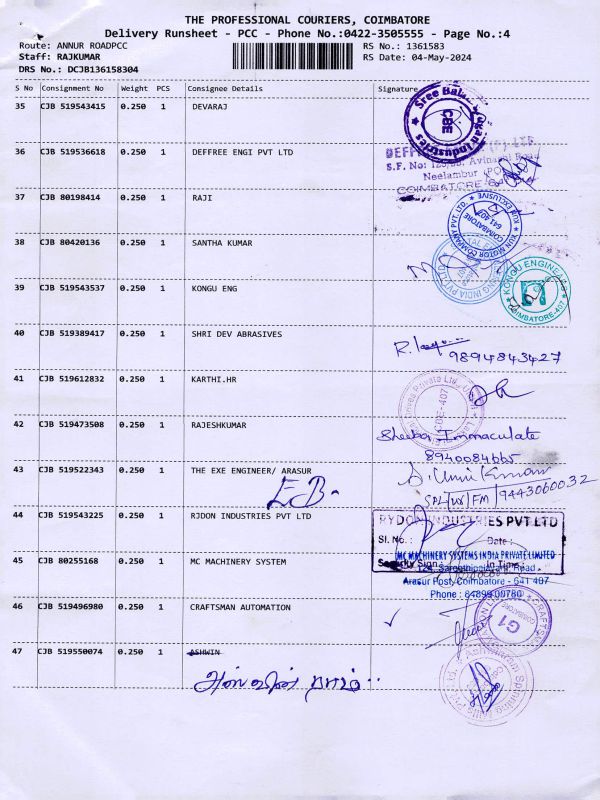 THE PROFESSIONAL COURIERS, COIMBATORE
Delivery Runsheet - PCC - Phone No.:0422-3505555 - Page No.:4
Route: ANNUR ROADPCC RS No.: 1361583
Staff: RAJKUMAR RS Date: 04-May-2024
DRS No.: DCJB136158304
S No Consignment No Weight PCS Consignee Details Signature
35 CJB 519543415 0.250 1 DEVARAJ
CBE
36 CJB 519536618 0.250 1 DEFFREE ENGI PVT LTD
Neelambur (PO)
COIMBATORE
37 CJB 80198414 1 0.250 1 RAJI
KUN MOTOR COMPANY PVT. LTD.
COIMBATORE
641 407
38 CJB 80420136 0.250 1 SANTHA KUMAR
39 CJB 519543537 0.250 1 KONGU ENG
KONGU ENGINEERS
COIMBATORE-407
40 CJB 519389417 0.250 1 SHRI DEV ABRASIVES
9894843427
41 CJB 519612832 0.250 1 KARTHI.HR
CBE-407
42 CJB 519473508 0.250 1 RAJESHKUMAR
Sheeba Immaculate
8940084665
43 CJB 519522343 0.250 1 THE EXE ENGINEER/ ARASUR
EB-
9443060032
44 CJB 519543225 0.250 1 RJDON INDUSTRIES PVT LTD
RYDON INDUSTRIES PVT LTD
Sl. No. : Date :
Security Sign In Time :
45 CJB 80255168 0.250 1 MC MACHINERY SYSTEM
MC MACHINERY SYSTEMS INDIA PRIVATE LIMITED
Arasur Post, Coimbatore - 641 407
Phone : 84899 00780
46 CJB 519496980 0.250 1 CRAFTSMAN AUTOMATION
G1
47 CJB 519550074 0.250 1 ASHWIN